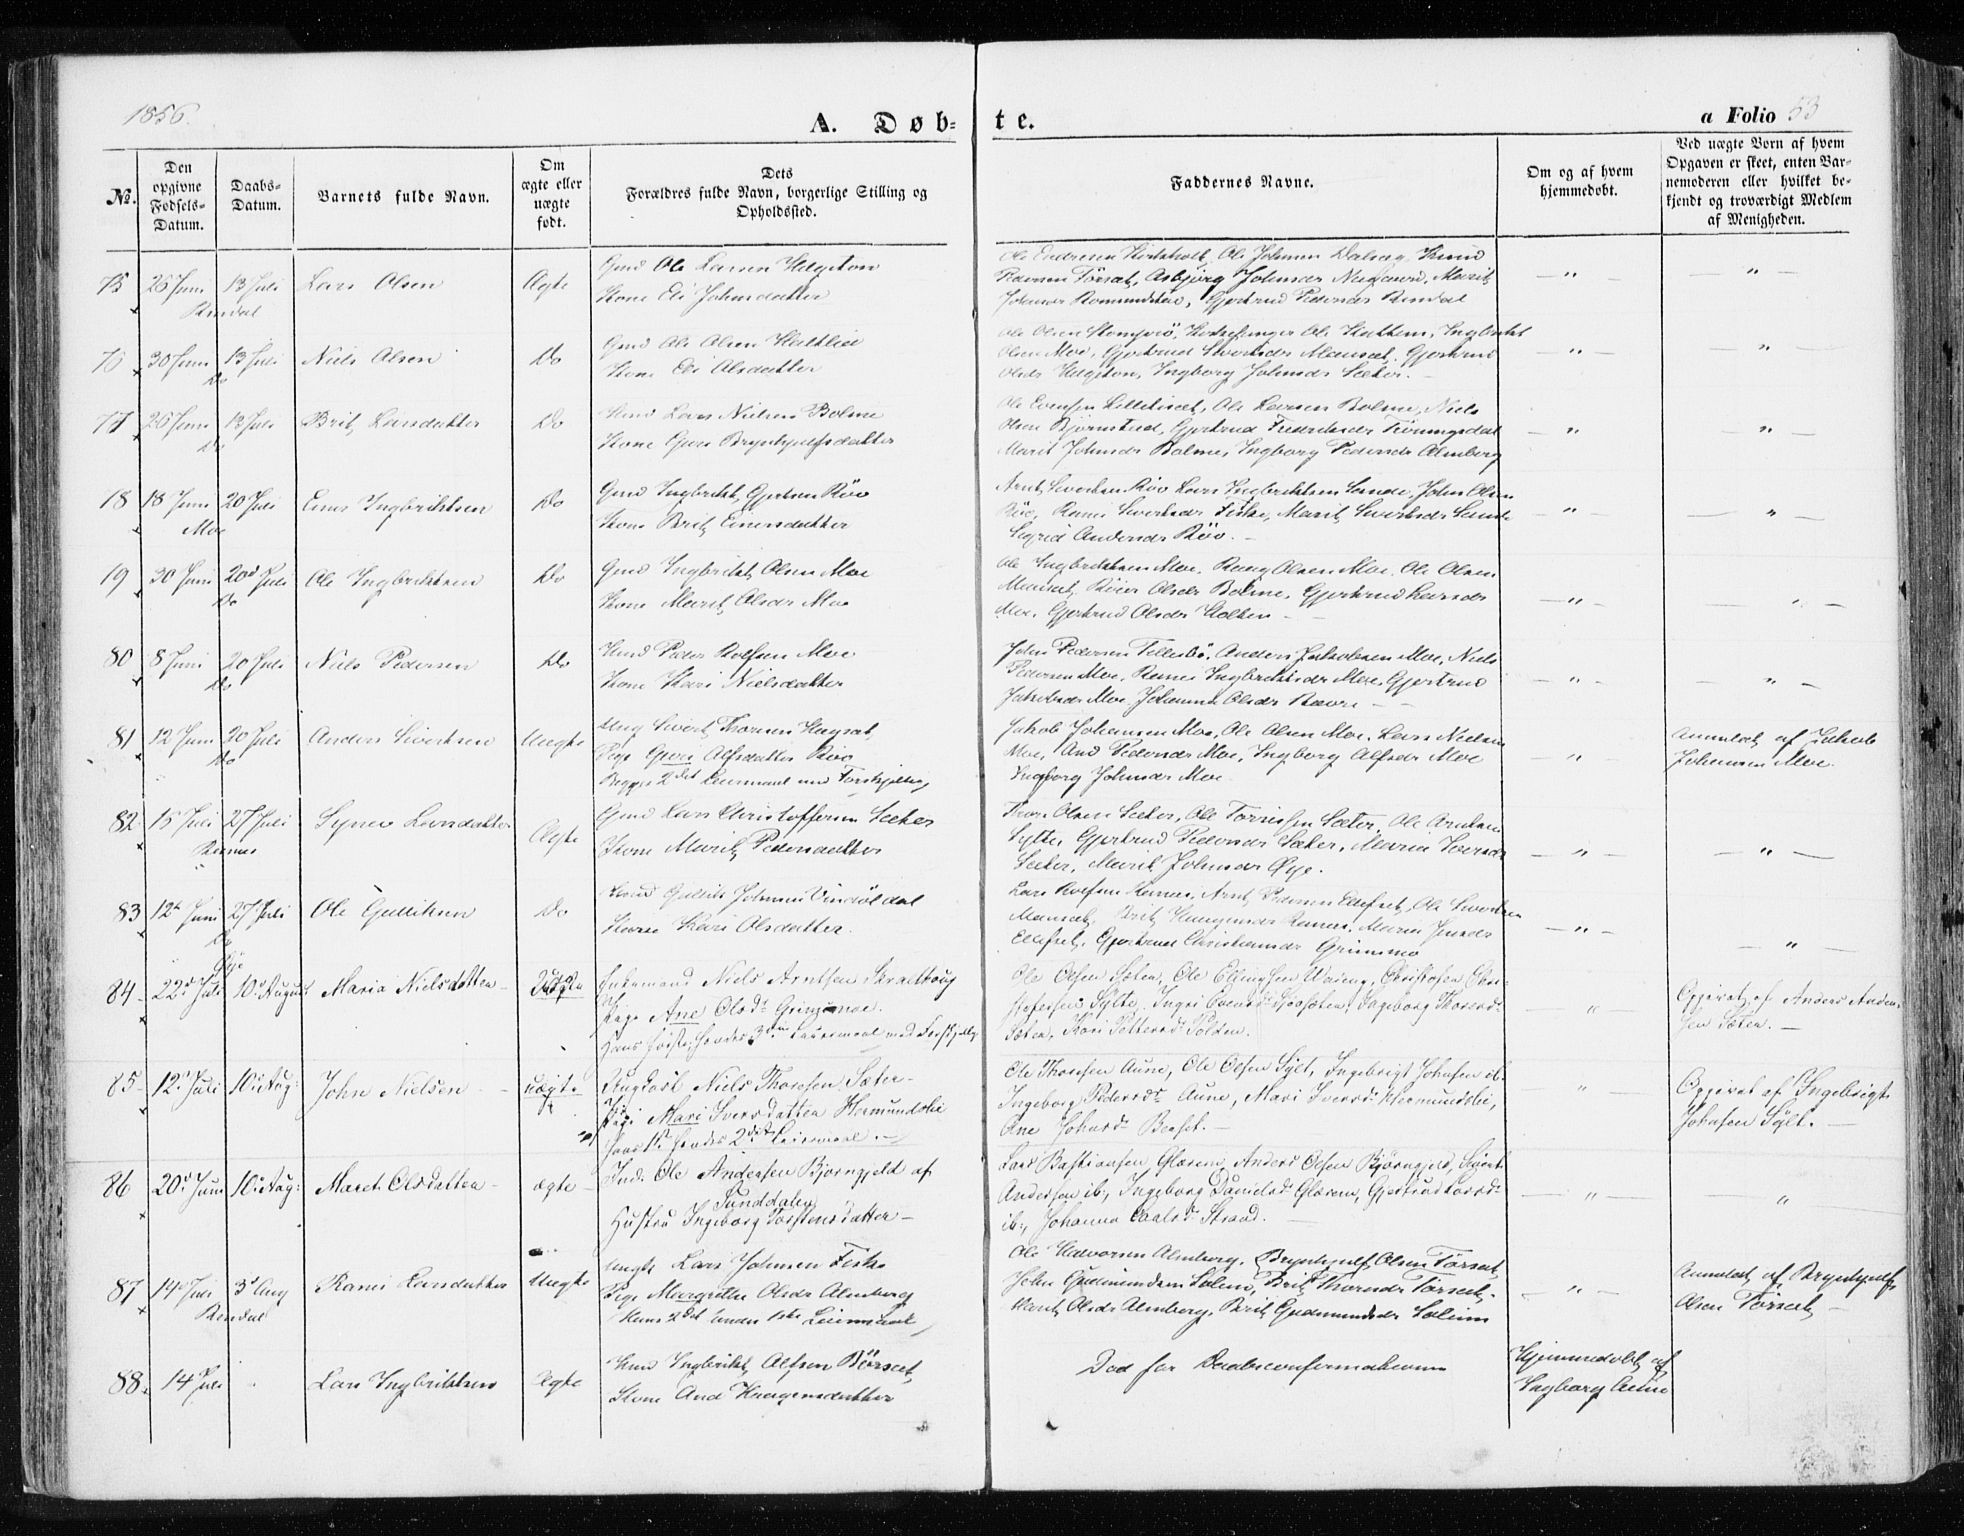 1856.
A. Døb-
te.
a Folio 53
No.
Den opgivne Fødsels-Datum.
Daabs-Datum.
Barnets fulde Navn.
Om ægte eller uægte født.
Dets Forældres fulde Navn, borgerlige Stilling og Opholdssted.
Faddernes Navne.
Om og af hvem hjemmedøbt.
Ved uægte Børn af hvem Opgaven er skeet, enten Barnemoderen eller hvilket bekjendt og troværdigt Medlem af Menigheden.
75 26 Juni 13 Juli Lars Olsen Ægte Gmd Ole Larsen Helgeton
Rindal Kone Eli Johnsdatter
Ole Endresen Ole Johnsen Dalsæg, Knud
Pedersen Tørsæt, Asbjørg Johnsdr Nergaard, Marit
Johnsdr Romundstad, Gjertrud Pedersdr Rindal
76 30 Juni 13 Juli Niels Olsen Do Gmd Ole Olsen
Do Kone Eli Olsdatter
Ole Olsen Kirkesanger Ole Ingbrikt
Olsen Moe, Gjertrud Sivertsdr Mauset, Gjertrud
Olsdr Helgeton, Ingborg Johnsdr Sæter.
77 26 Juni 13 Juli Brit Larsdatter Do Lars Nielsen Bolme
Do Kone Guri Brynhjulfsdatter
Ole Evensen Ole Larsen Bolme, Niels
Olsen Bjørnstad, Gjertrud
Marit Johnsdr Bolme, Ingborg Pedersdr Almberg
78 18 Juni 20 Juli Einer Ingbriktsen Do Gmd Ingbrikt Gjertsen Røv
Moe Kone Brit Einersdatter
Arnt Sivertsen Røv Lars Ingbriktsen Sande, John Olsen
Røv, Ranei Sivertsdr Fiske, Marit Sivertsdr Sande
Sigrid Andersdr Røv.
79 30 Juni 20d Juli Ole Ingbriktsen Do Gmd Ingbrikt Olsen Moe
Do Kone Marit Olsdr Moe
Ole Ingbriktsen Moe. Olsen Moe. Ole Olsen
Mauset, Olsdr Bolme, Gjertrud Larsdr
Moe, Gjertrud Olsdr Holten
80 8 Juni 20 Juli Niels Pedersen Do Peder Rolfsen Moe
Do Kone Kari Nielsdatter
John Pedersen Anders Jakobsen Moe, Niels
Pedersen Moe, Ranei Ingbriktsdr Moe, Gjertrud
Jakobsdr Moe. Johanna Olsdr
81 12 Juni 20 Juli Anders Sivertsen Uægte Ung Sivert Thoresen
Do Pige Guri Alfsdatter Røv
Begges 2det Leiermaal med Forskjellig
Jakob Johansen Moe, Ole Olsen Moe. Lars Nielsen
Moe, And Pedersdr Moe, Ingborg Alfsdr Moe
Ingborg Johnsdr Moe
Anmeldt af Jakob
Johansen Moe.
82 15 Juli 27 Juli Signe Larsdatter Ægte Gmd Lars Christoffersen Sæter
Kone Marit Pedersdatter
Thore Olsen Sæter, Ole Sæter, Ole Arntsen
Sylte, Gjertrud Pedersdr Sæter, Maria
Sæter, Marit Johnsdr Øye.
83 12t Juni 27 Juli Ole Gulliksen Do Gullik Johnsen Vindøldal
Do Kone Kari Olsdatter.
Lars Rolfsen Arnt Pedersen Ellefset, Ole Sivertsen
Mauset, Brit Haagensdr Maria
Ellefset, Gjertrud Christiansdr Grimmo
84 22d Juli 10d August Maria Nielsdatter Uægte Enkemand Niels Arntsen
Øye Pige Ane Olsdr Grimmoe.
Hans første, hendes 3die Leiermaal med Forskjellig
Ole Olsen Sæter, Ole Ellingsen Christofer Chri-
stofersen Sylte, Ingri Ingeborg Thoresdr
Sæter, Kari Pettersdr Polden.
Opgivet af Anders Ander-
sen Sæter.
85 12d Juli 10d Aug: John Nielsen uægte Ungkarl Niels Thoresen Sæter
Pige Mari Iversdatter Hermundslie
Hans 1ste hendes 2det Leiermaal.
Ole Thoresen Aune, Ole Olsen Sylt, Ingebrigt Johnsen ib.
Ingeborg Pedersdr Aune, Mari Iversdr Hermundslie,
Ane Johnsdr Beeset.
Opgivet af Ingebrigt
Johnsen Sylt.
86 20d Juni 10d Aug: Maret Olsdatter ægte Ind: Ole Andersen Bjørngjeld af
Sunddalen
Hustru Ingeborg Torstensdatter
Lars Bastiansen Glærem, Anders Olsen Bjørngjeld, Sivert
Andersen ib:, Ingeborg Danielsdr Glærem, Gjertrud
ib:, Johanna Strand.
87 14d Juli 3d Aug Ranei Larsdatter Uægte Ungk Lars Johnsen Fiske
Rindal Pige Margrethe Olsdr Almberg
Hans 2det hendes 1ste Leiermaal
Ole Halvorsen Almberg, Brynhjulf Olsen Tørsæt,
John Gudmundsen Solem, Brit Thoresdr Tørsæt,
Marit Olsdr Almberg, Berit Gudmundsdr Solem
Anmeldt af Brynhjulf
Olsen Tørsæt
88 14 Juli Lars Ingbriktsen Ægte Ingbrikt Alfsen Børsæt,
Kone And Haagensdatter
Død før Daabsconfirmationen
Hjemmedøbt af
Ingborg Aune